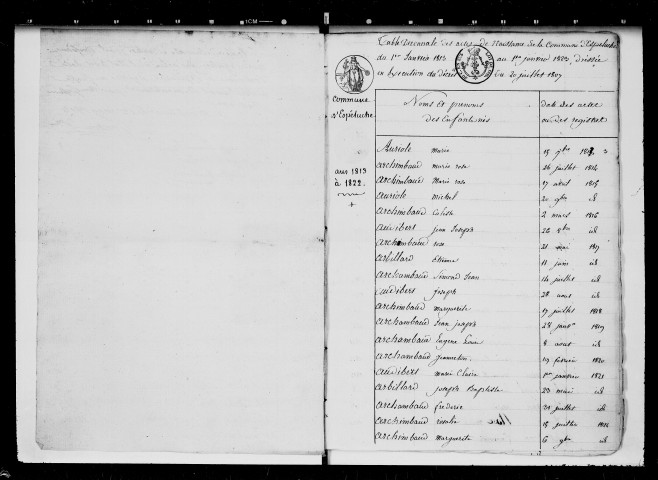 Table Decennale des actes de Naissance de la commune d'Espeluche
du 1er Janvier 1813 au 1er janvier 1823, dressée
en Execution du Décret du 20 juillet 1807
commune
d'Espéluche
ans 1813
à 1822.
Noms et prenoms
des Enfants nés
date des actes
ou des registres
Auriole marie 15 9bre
archimbaud marie rose 26 juillet 1814
archimbaud Marie rose 17 avril 1815
auriole michel 20 9bre id
archimbaud Caliste 2 mars 1816
audibert jean Joseph 26 8bre id
archambaud rose 21 mai 1817
arbillard Etienne 11 juin id
archambaud Simond Jean 14 juillet id
audibert joseph 28 aout id
archimbaud marguerite 17 juillet 1818
archambaud Jean joseph 28 janv 1819
archambaud Eugène 8 aout id
archambaud 19 fevrier 1820
audibert marie Claire 1er janvier 1821
arbillard joseph Baptiste 23 mai id
archambaud frederic juillet id
archimbaud rosalie 15 juillet
archimbaud marguerite 6 9bre id